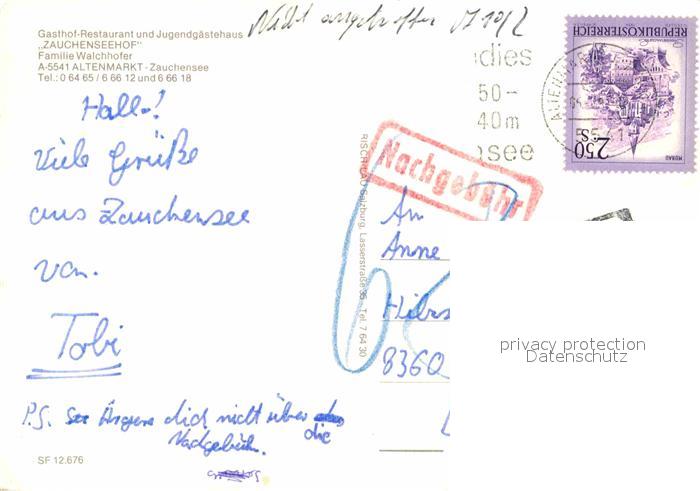 Gasthof-Restaurant und Jugendgästehaus
„ZAUCHENSEEHOF"
Familie Walchhofer
A-5541 ALTENMARKT - Zauchensee
Tel.: 0 64 65 / 6 66 12 und 6 66 18
Nicht angetroffen
Hallo!
Viele Grüße
aus Zauchensee
von
Tobi
P.S. Ärgere dich nicht über
die
Nachgebühr.
SF 12.676
RISCHRLAU Salzburg, Lasserstraße 35 Tel. 7 64 30
dies
50 –
40 m
see
REPUBLIK ÖSTERREICH
2.50
S
MURAU
Nachgebühr
An
Anne
8360
privacy protection
Datenschutz